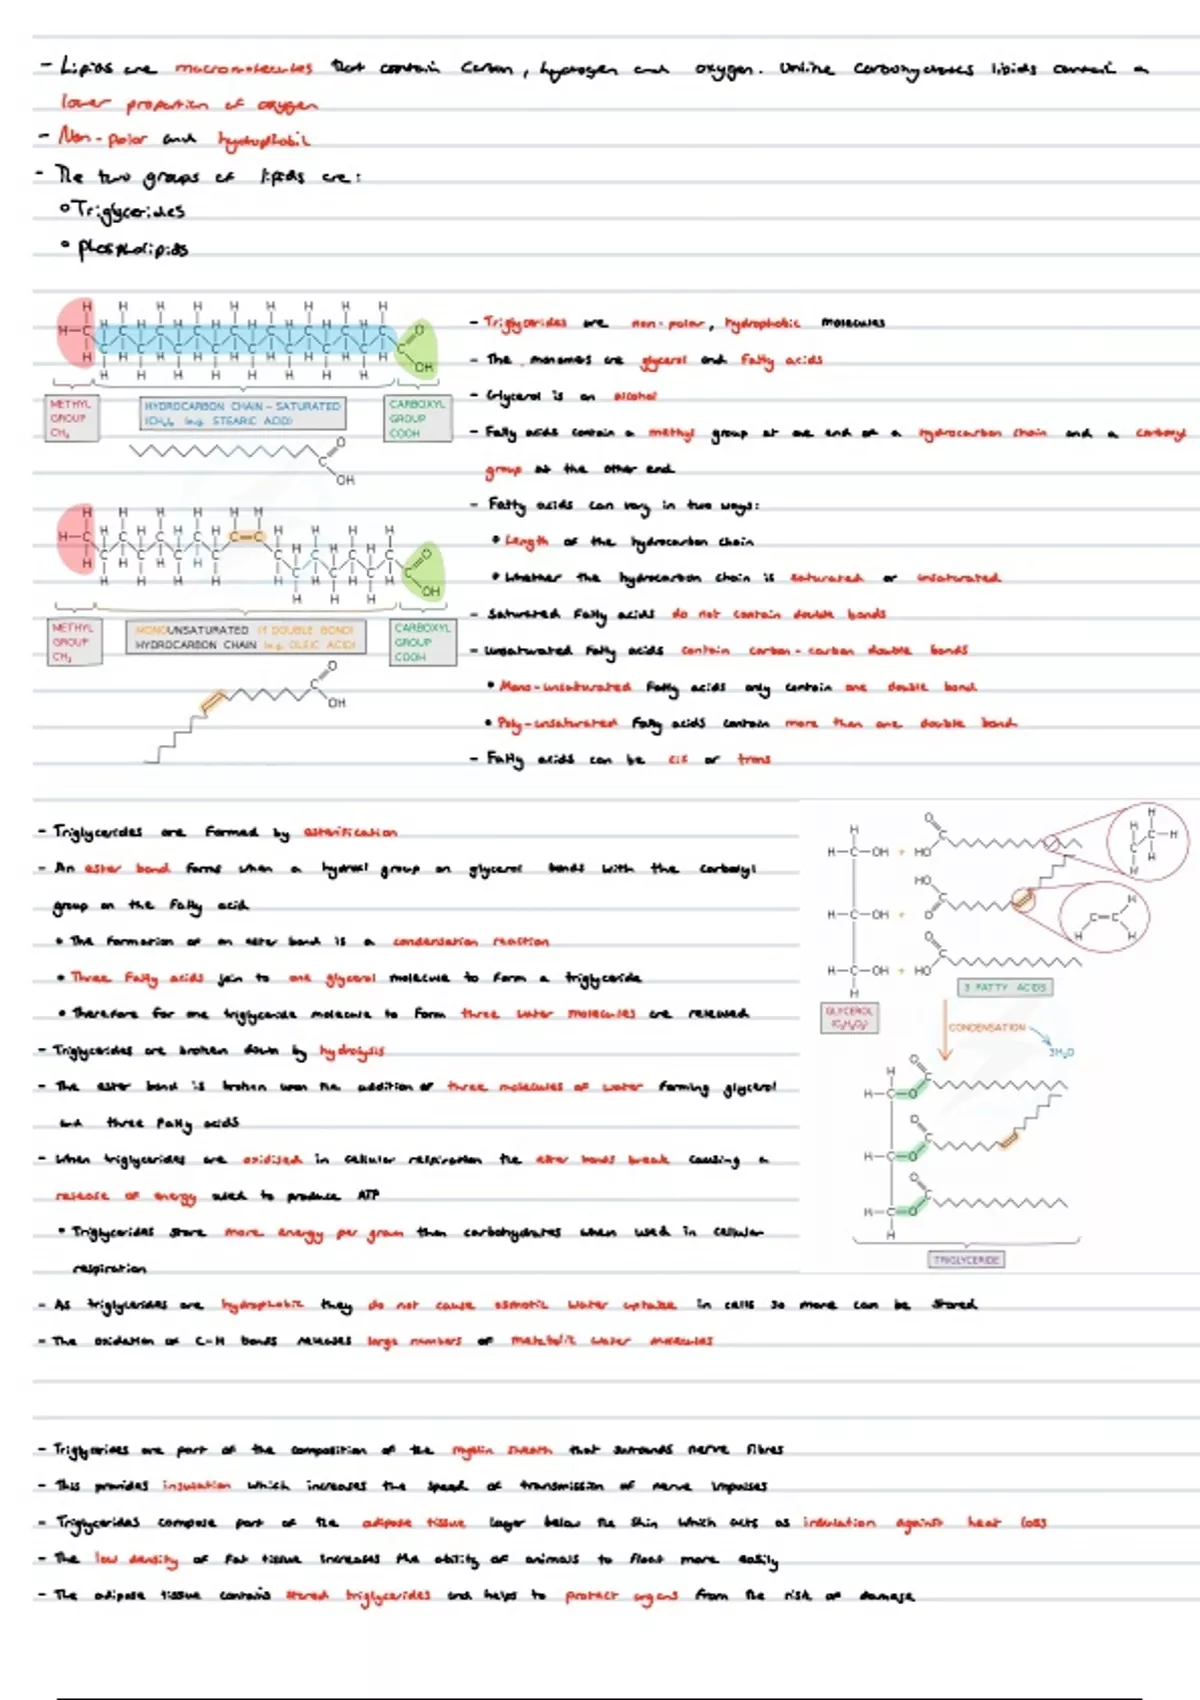 - Lipids are macromolecules that contain Carbon, hydrogen and oxygen. Unlike Carbohydrates lipids contain a
lower proportion of oxygen
- Non-polar and hydrophobic
- The two groups of lipids are:
Triglycerides
Phospholipids
METHYL GROUP CH₃
HYDROCARBON CHAIN - SATURATED (e.g. STEARIC ACID)
CARBOXYL GROUP COOH
METHYL GROUP CH₃
MONOUNSATURATED (1 DOUBLE BOND) HYDROCARBON CHAIN (e.g. OLEIC ACID)
CARBOXYL GROUP COOH
- Triglycerides are non-polar, hydrophobic molecules
- The monomers are glycerol and fatty acids
- Glycerol is an alcohol
- Fatty acids contain a methyl group at one end of a hydrocarbon chain and a carboxyl
group at the other end
- Fatty acids can vary in two ways:
• Length of the hydrocarbon chain
• Whether the hydrocarbon chain is saturated or unsaturated
- Saturated fatty acids do not contain double bonds
- Unsaturated fatty acids contain carbon-carbon double bonds
• Mono-unsaturated fatty acids only contain one double bond
• Poly-unsaturated fatty acids contain more than one double bond
- Fatty acids can be cis or trans
- Triglycerides are formed by esterification
- An ester bond forms when a hydroxyl group on glycerol bonds with the carboxyl
group on the fatty acid
• The formation of an ester bond is a condensation reaction
• Three fatty acids join to one glycerol molecule to form a triglyceride
• Therefore for one triglyceride molecule to form three water molecules are released
- Triglycerides are broken down by hydrolysis
- The ester bond is broken upon the addition of three molecules of water forming glycerol
and three fatty acids
- When triglycerides are oxidised in cellular respiration the ester bonds break causing a
release of energy used to produce ATP
• Triglycerides store more energy per gram than carbohydrates when used in cellular
respiration
- As triglycerides are hydrophobic they do not cause osmotic water uptake in cells so more can be stored
- The oxidation of C-H bonds releases large numbers of metabolic water molecules
3 FATTY ACIDS
GLYCEROL
CONDENSATION
3H₂O
TRIGLYCERIDE
- Triglycerides are part of the composition of the myelin sheath that surrounds nerve fibres
- This provides insulation which increases the speed of transmission of nerve impulses
- Triglycerides compose part of the adipose tissue layer below the skin which acts as insulation against heat loss
- The low density of fat tissue increases the ability of animals to float more easily
- The adipose tissue contains stored triglycerides and helps to protect organs from the risk of damage